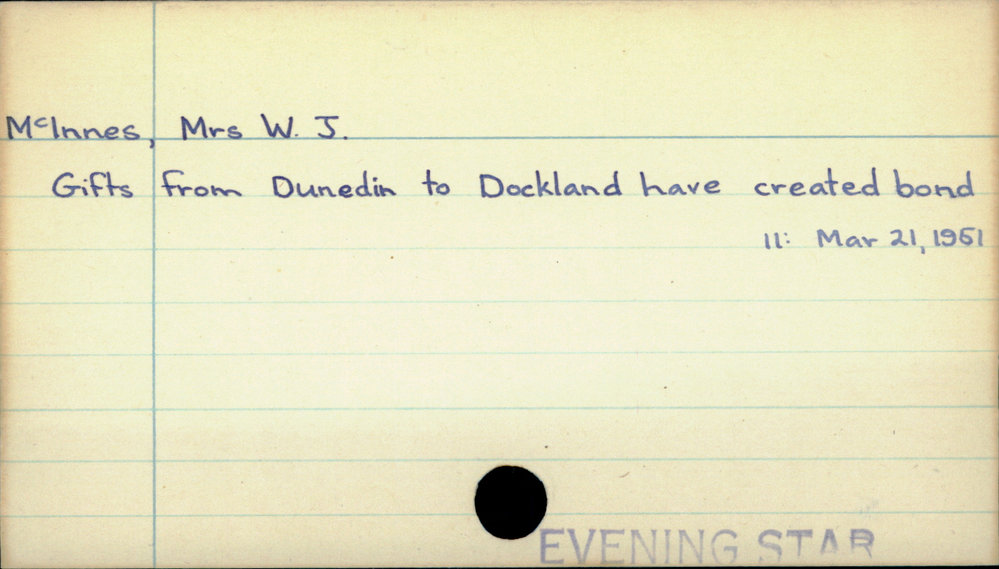 McInnes, Mrs W. J.
Gifts from Dunedin to Dockland have created bond
11: Mar 21, 1951
EVENING STAR